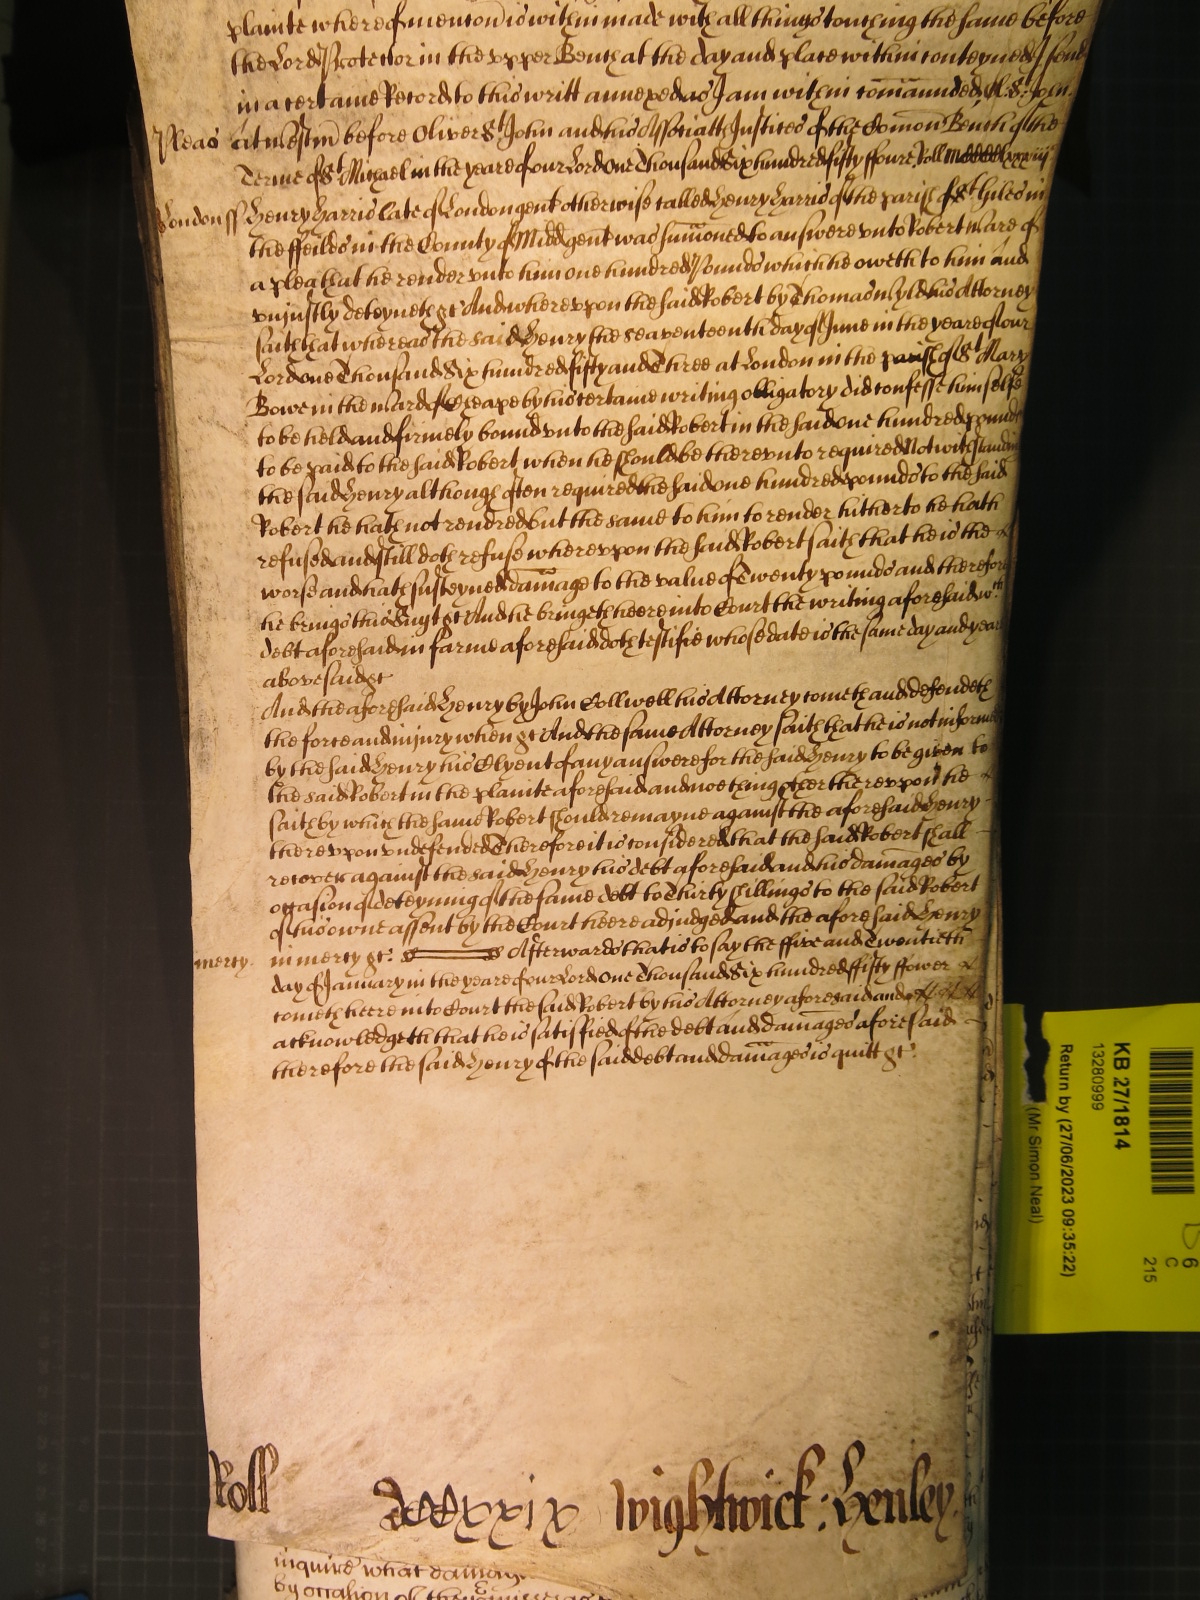 plainte whereof mention is within made with all things touching the same before
the Lord Protector in the upper Bench at the day and place within conteyned I send
in a certaine Record to this writt annexed as I am within comaunded Ol: St: John.
Pleas att Westm̃ before Oliver St John and his Associatts Justices of the Comon Bench of the
Terme of St Michael in the yeare of our Lord One Thousand Six hundred fifty ffoure Roll
London ss Henry Harris late of London gent otherwise called Henry Harris of the parish of St Giles in
the ffeilds in the County of Midd gent was sumoned to answere unto Robert Mare of
a plea that he render unto him one hundred Pounds which he oweth to him and
unjustly deteyneth &c And whereupon the said Robert by Thomas Wyld his Attorney
saith that whereas the said Henry the seaventeenth day of June in the yeare of our
Lord one Thousand Six hundred fifty and Three at London in the parish of St Mary
Bowe in the Ward of Cheape by his certaine writing obligatory did confesse himselfe
to be held and firmely bound unto the said Robert in the said one hundred pounds
to be paid to the said Robert when he should be thereunto required Notwithstanding
the said Henry although often required the said one hundred pounds to the said
Robert he hath not rendred but the same to him to render hitherto he hath
refused and still doth refuse whereupon the said Robert saith that he is the
worse and hath susteyned damage to the value of Twenty pounds and therefore
he brings this Suyt &c And he bringeth heere into Court the writing aforesaid wch
debt aforesaid in farme aforesaid doth testifie whose date is the same day and yeare
abovesaid &c
And the aforesaid Henry by John Collwell his Attorney cometh and defendeth
the force and injury when &c And the same Attorney saith that he is not informed
by the said Henry his Clyent of any answere for the said Henry to be given to
the said Robert in the plainte aforesaid and noething other thereuppon he
saith by which the same Robert should remayne against the aforesaid Henry
thereupon undefended Therefore it is considered that the said Robert shall
recover against the said Henry his debt aforesaid and his damages by
occasion of deteyning of the same debt to Thirty shillings to the said Robert
of his owne assent by the Court heere adjudged and the aforesaid Henry
mercy. in mercy &c: Afterwards that is to say the ffive and Twentieth
day of January in the yeare of our Lord One Thousand Six hundred ffifty ffower
cometh heere into Court the said Robert by his Attorney aforesaid and
acknowledgeth that he is satisfied of the debt and damages aforesaid
therefore the said Henry of the said debt and damages is quitt &c:
Roll Wightwick: Henley.
inquire what damag
by occasion of the
KB 27/1814
13280999
Return by (27/06/2023 09:35:22)
(Mr Simon Neal)
6
C
215